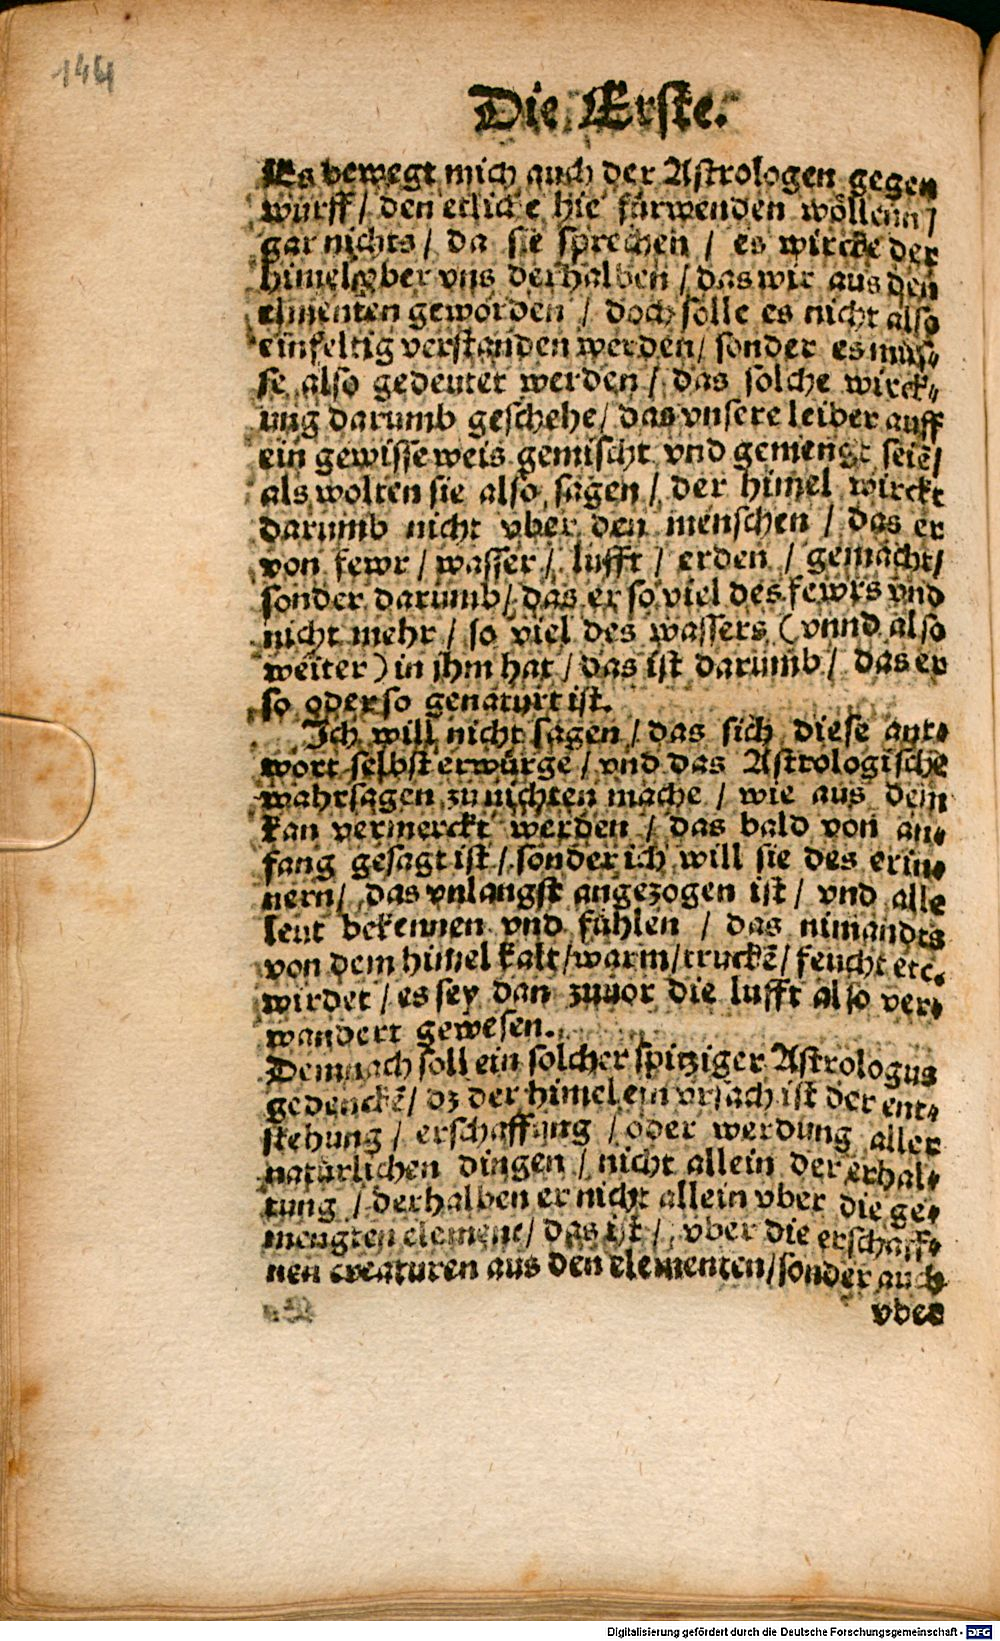 144
Die Erste.
Es bewegt mich auch der Astrologen gegen
wurff / den etliche hie fürwenden wöllenn /
gar nichts / da sie sprechen / es wircke der
himel vber vns derhalben / das wir aus den
elmenten geworden / doch solle es nicht also
einfeltig verstanden werden / sonder es müs⸗
se also gedeutet werden / das solche wirck⸗
ung darumb geschehe / das vnsere leiber auff
ein gewisse weis gemischt vnd gemengt seiẽ /
als wolten sie also sagen / der himel wirckt
darumb nicht vber den menschen / das er
von fewr / wasser / lufft / erden / gemacht /
sonder darumb / das er so viel des fewrs vnd
nicht mehr / so viel des wassers (vnnd also
weiter) in jhm hat / das ist darumb / das er
so oder so genaturt ist.
Ich will nicht sagen / das sich diese ant⸗
wort selbst erwürge / vnd das Astrologische
wahrsagen zu nichten mache / wie aus dem
kan vermerckt werden / das bald von an⸗
fang gesagt ist / sonder ich will sie des erin⸗
nern / das vnlangst angezogen ist / vnd alle
leut bekennen vnd fühlen / das nimandts
von dem himel kalt / warm / truckẽ / feucht etc.
wirdet / es sey dan zuuor die lufft also ver⸗
wandert gewesen.
Demnach soll ein solcher spitziger Astrologus
gedenckẽ / dz der himel ein vrsach ist der ent⸗
stehung / erschaffung / oder werdung aller
natürlichen dingen / nicht allein der erhal⸗
tung / derhalben er nicht allein vber die ge⸗
mengten element / das ist / vber die erschaff⸗
nen creaturen aus den elementen / sonder auch
vber
Digitalisierung gefördert durch die Deutsche Forschungsgemeinschaft - DFG